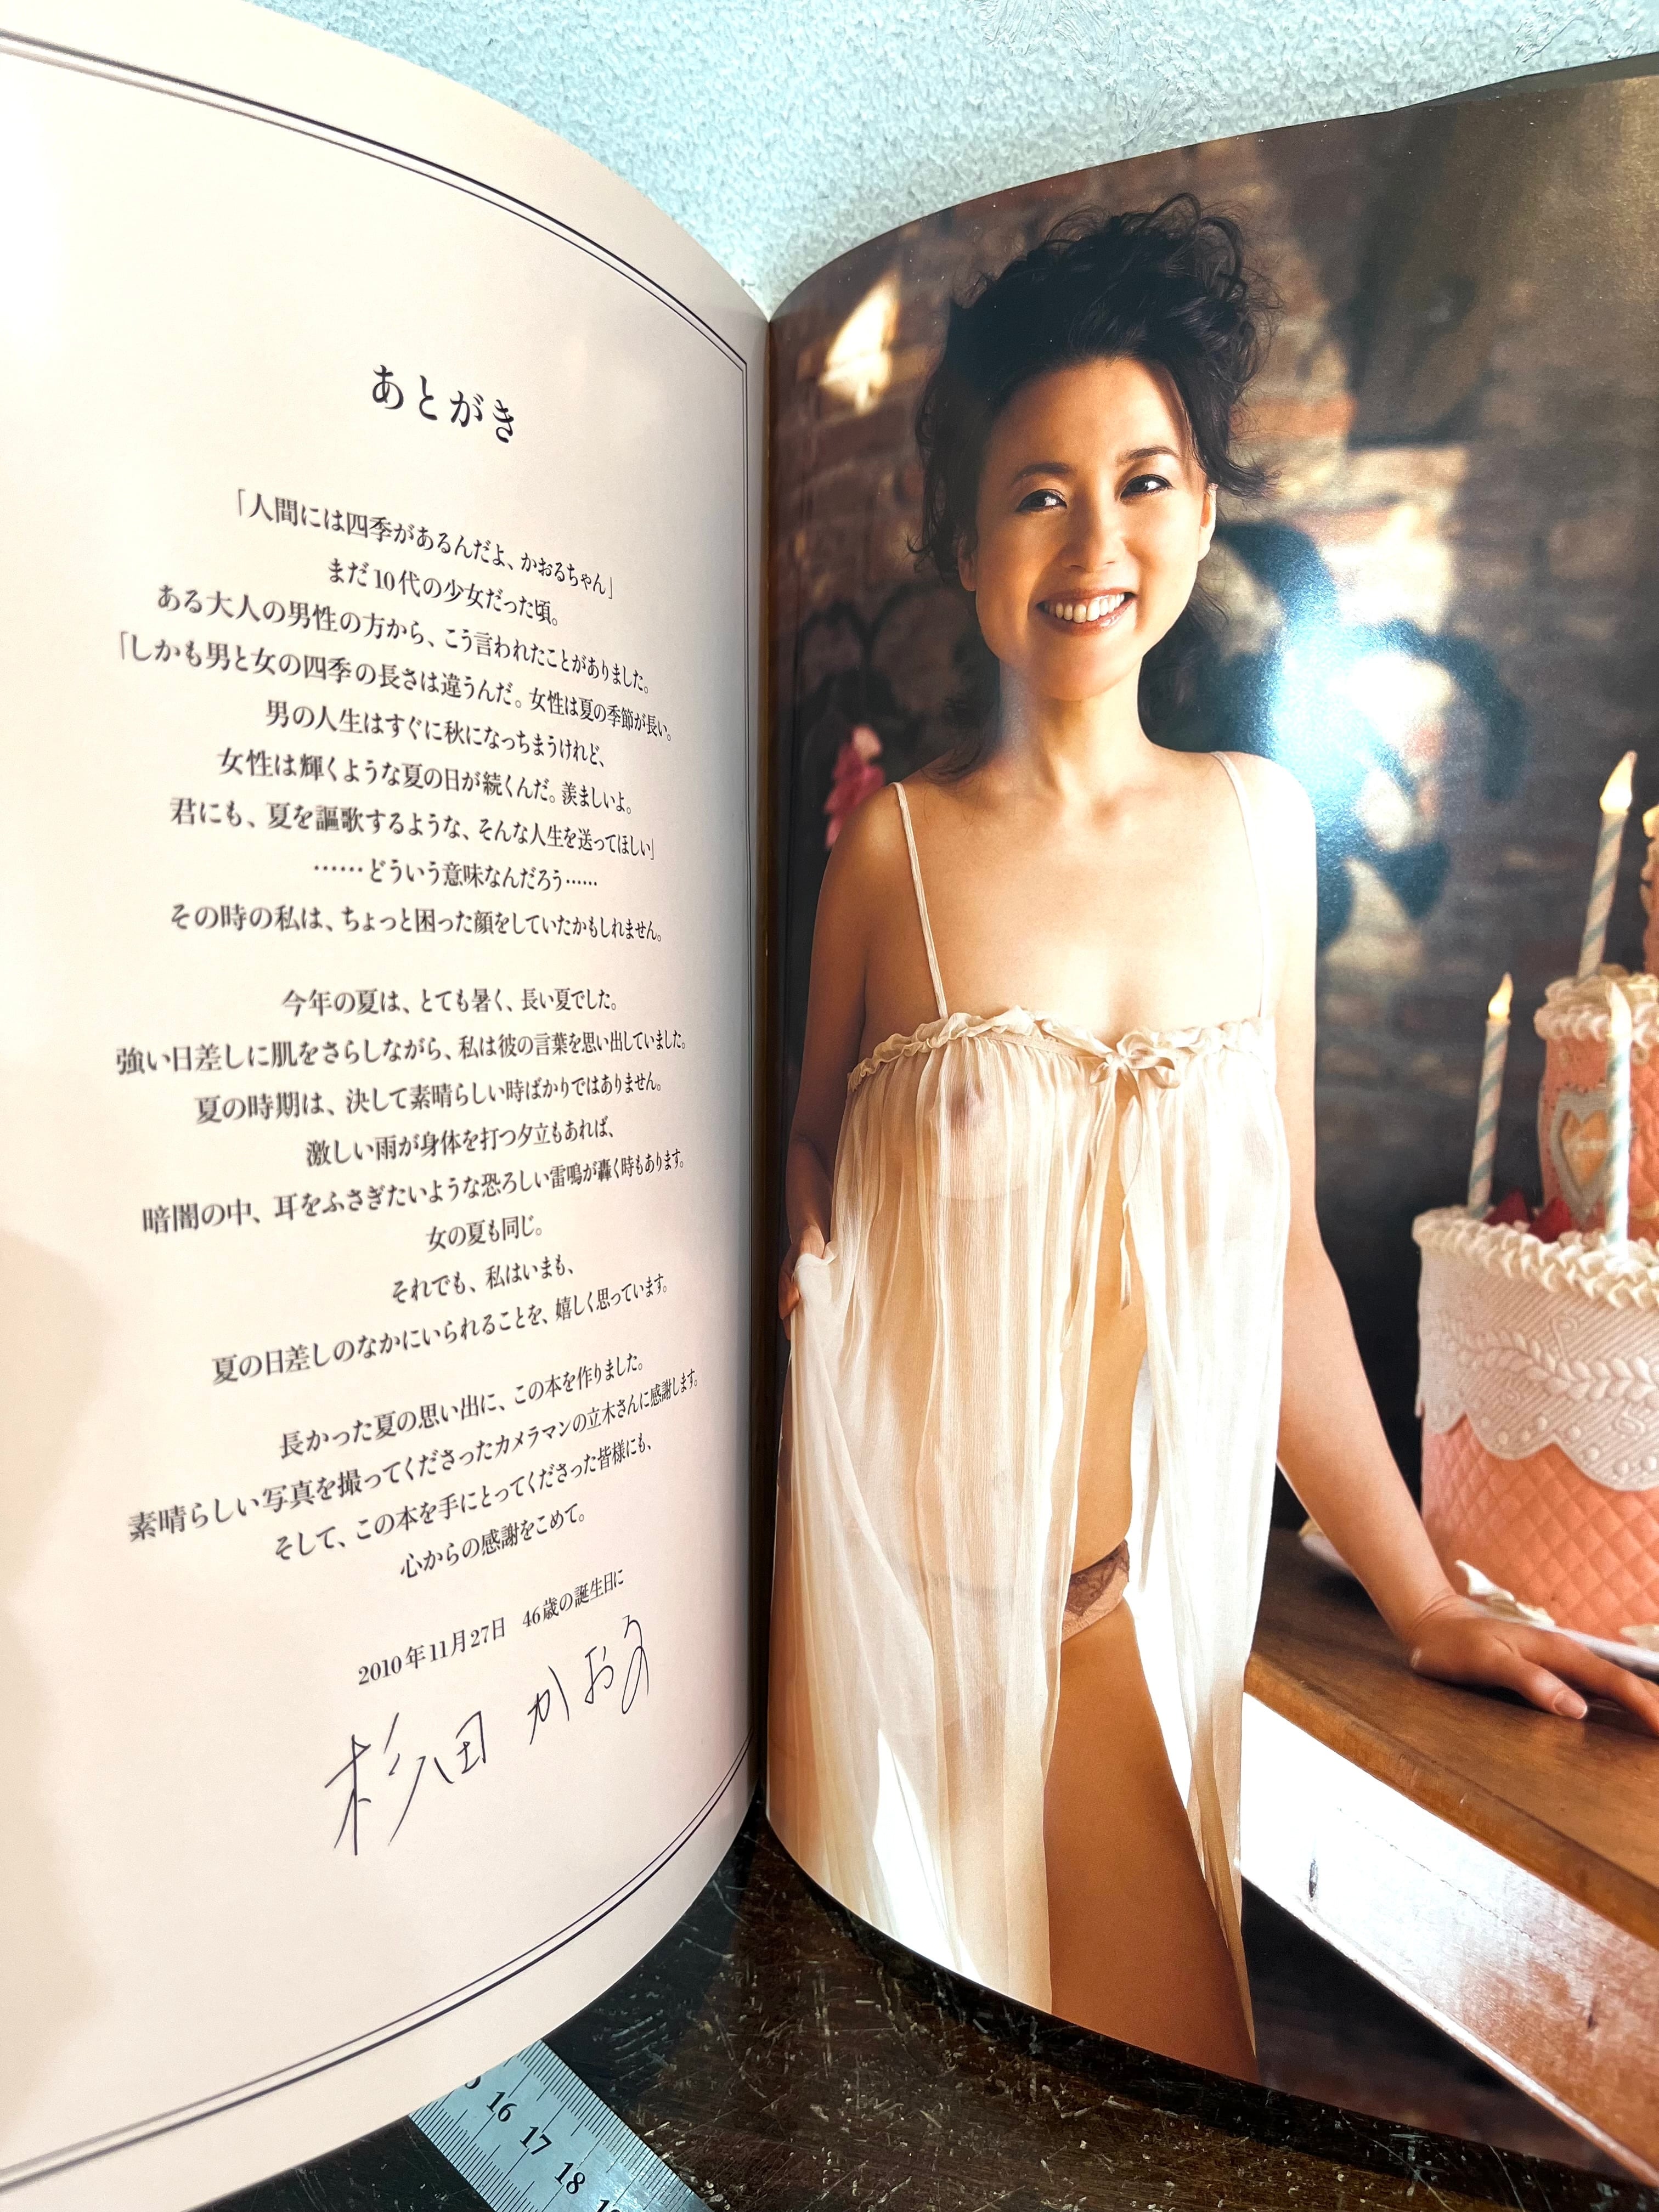 あとがき
「人間には四季があるんだよ、かおるちゃん」
まだ10代の少女だった頃。
ある大人の男性の方から、こう言われたことがありました。
「しかも男と女の四季の長さは違うんだ。女性は夏の季節が長い。
男の人生はすぐに秋になっちまうけれど、
女性は輝くような夏の日が続くんだ。羨ましいよ。
君にも、夏を謳歌するような、そんな人生を送ってほしい」
……どういう意味なんだろう……
その時の私は、ちょっと困った顔をしていたかもしれません。
今年の夏は、とても暑く、長い夏でした。
強い日差しに肌をさらしながら、私は彼の言葉を思い出していました。
夏の時期は、決して素晴らしい時ばかりではありません。
激しい雨が身体を打つ夕立もあれば、
暗闇の中、耳をふさぎたいような恐ろしい雷鳴が轟く時もあります。
女の夏も同じ。
それでも、私はいまも、
夏の日差しのなかにいられることを、嬉しく思っています。
長かった夏の思い出に、この本を作りました。
素晴らしい写真を撮ってくださったカメラマンの立木さんに感謝します。
そして、この本を手にとってくださった皆様にも、
心からの感謝をこめて。
2010年11月27日 46歳の誕生日に
杉田かおる
16 17 18